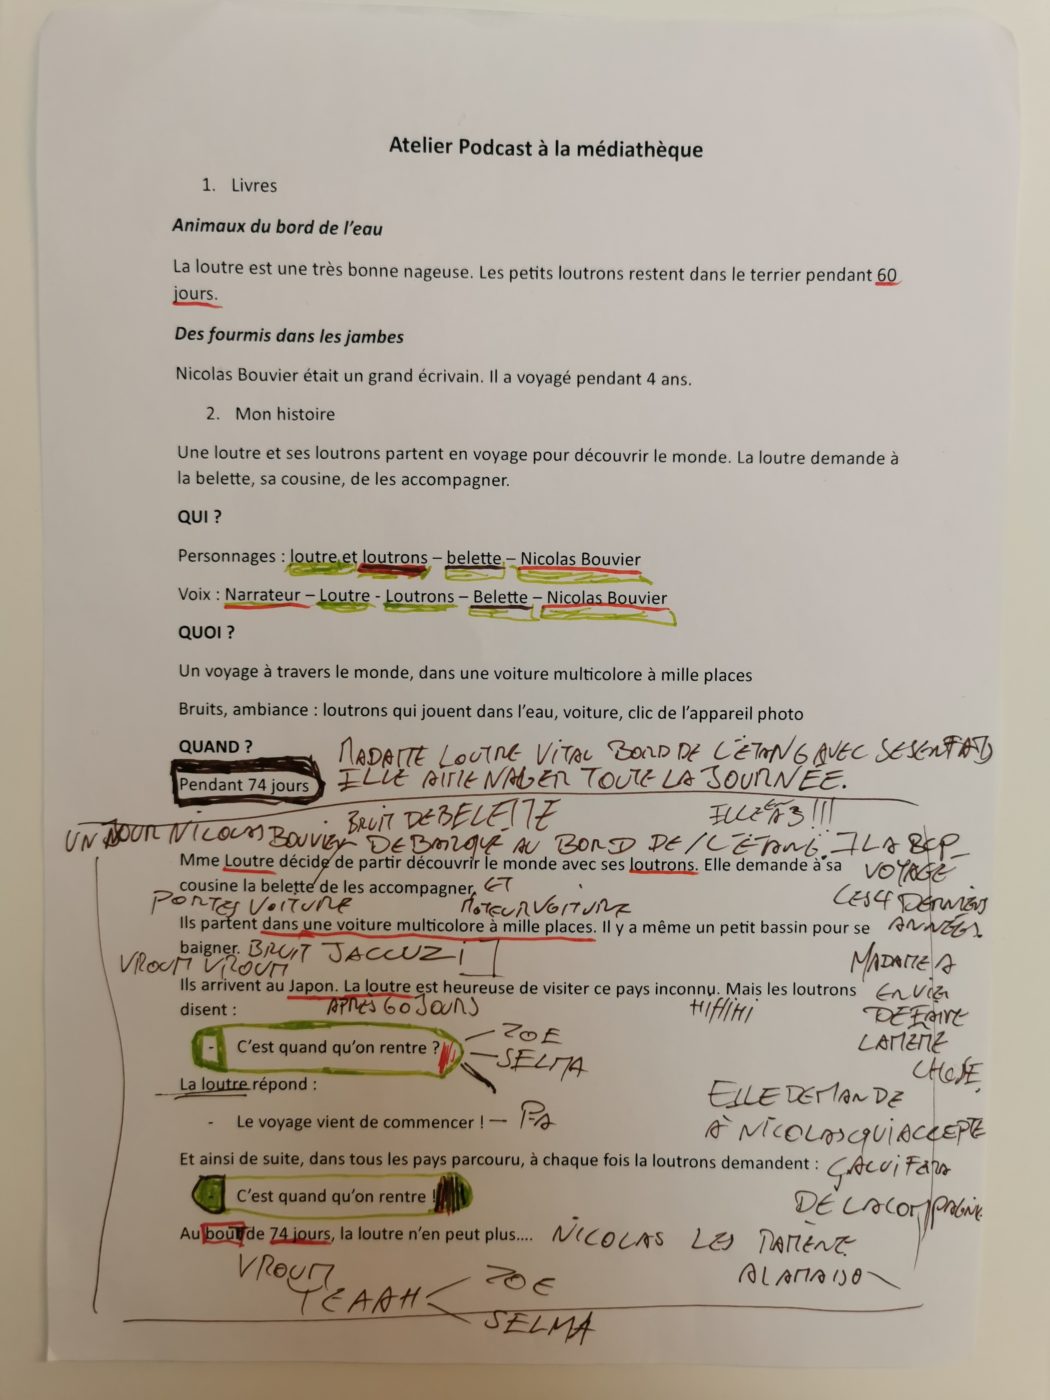 Atelier Podcast à la médiathèque
1. Livres
Animaux du bord de l'eau
La loutre est une très bonne nageuse. Les petits loutrons restent dans le terrier pendant 60
jours.
Des fourmis dans les jambes
Nicolas Bouvier était un grand écrivain. Il a voyagé pendant 4 ans.
2. Mon histoire
Une loutre et ses loutrons partent en voyage pour découvrir le monde. La loutre demande à
la belette, sa cousine, de les accompagner.
QUI ?
Personnages : loutre et loutrons – belette – Nicolas Bouvier
Voix : Narrateur – Loutre - Loutrons – Belette – Nicolas Bouvier
QUOI ?
Un voyage à travers le monde, dans une voiture multicolore à mille places
Bruits, ambiance : loutrons qui jouent dans l'eau, voiture, clic de l'appareil photo
QUAND ?
MADAME LOUTRE VIT AU BORD DE L'ÉTANG AVEC SES
Pendant 74 jours
NAGER TOUTE LA JOURNÉE.
BRUIT DE BELETTE
UN JOUR NICOLAS BOUVIER DEBARQUE AU BORD DE L'ÉTANG. IL A BCP
Mme Loutre décide de partir découvrir le monde avec ses loutrons. Elle demande à sa
VOYAGE
cousine la belette de les accompagner. ET
LES 4 DERNIERS
PORTES VOITURE
MOTEUR VOITURE
Ils partent dans une voiture multicolore à mille places. Il y a même un petit bassin pour se
ANNÉES.
baigner. BRUIT JACCUZI
VROUM VROUM
MADAME A
Ils arrivent au Japon. La loutre est heureuse de visiter ce pays inconnu. Mais les loutrons
ENVIE
disent :
APRÈS 60 JOURS
HIHIHI
DE FAIRE
- C'est quand qu'on rentre ?
ZOE
SELMA
LA MEME
CHOSE.
La loutre répond :
ELLE DEMANDE
- Le voyage vient de commencer !
À NICOLAS QUI ACCEPTE
Et ainsi de suite, dans tous les pays parcouru, à chaque fois la loutrons demandent :
ÇA LUI FERA
- C'est quand qu'on rentre !
DE LA COMPAGNIE
Au bout de 74 jours, la loutre n'en peut plus.... NICOLAS LES RAMÈNE
A LA MAISON
VROUM
YEAAH
ZOE
SELMA